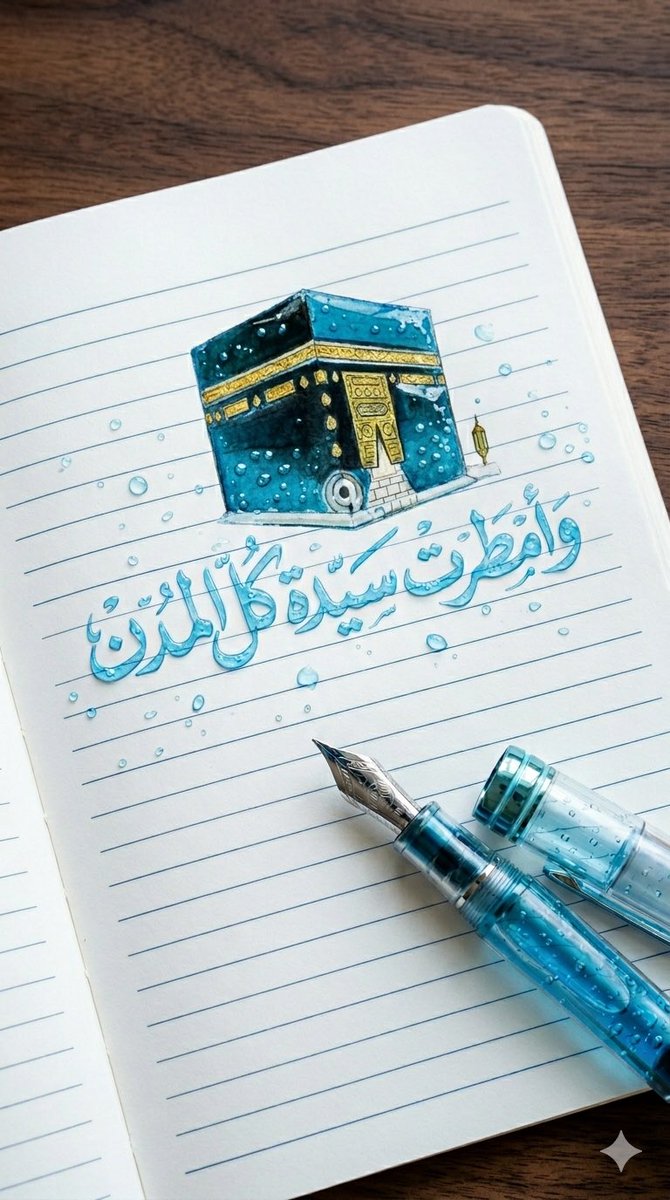 وَأَمْطَرَتْ سَيِّدَة كُلّ الْمُدُنْ